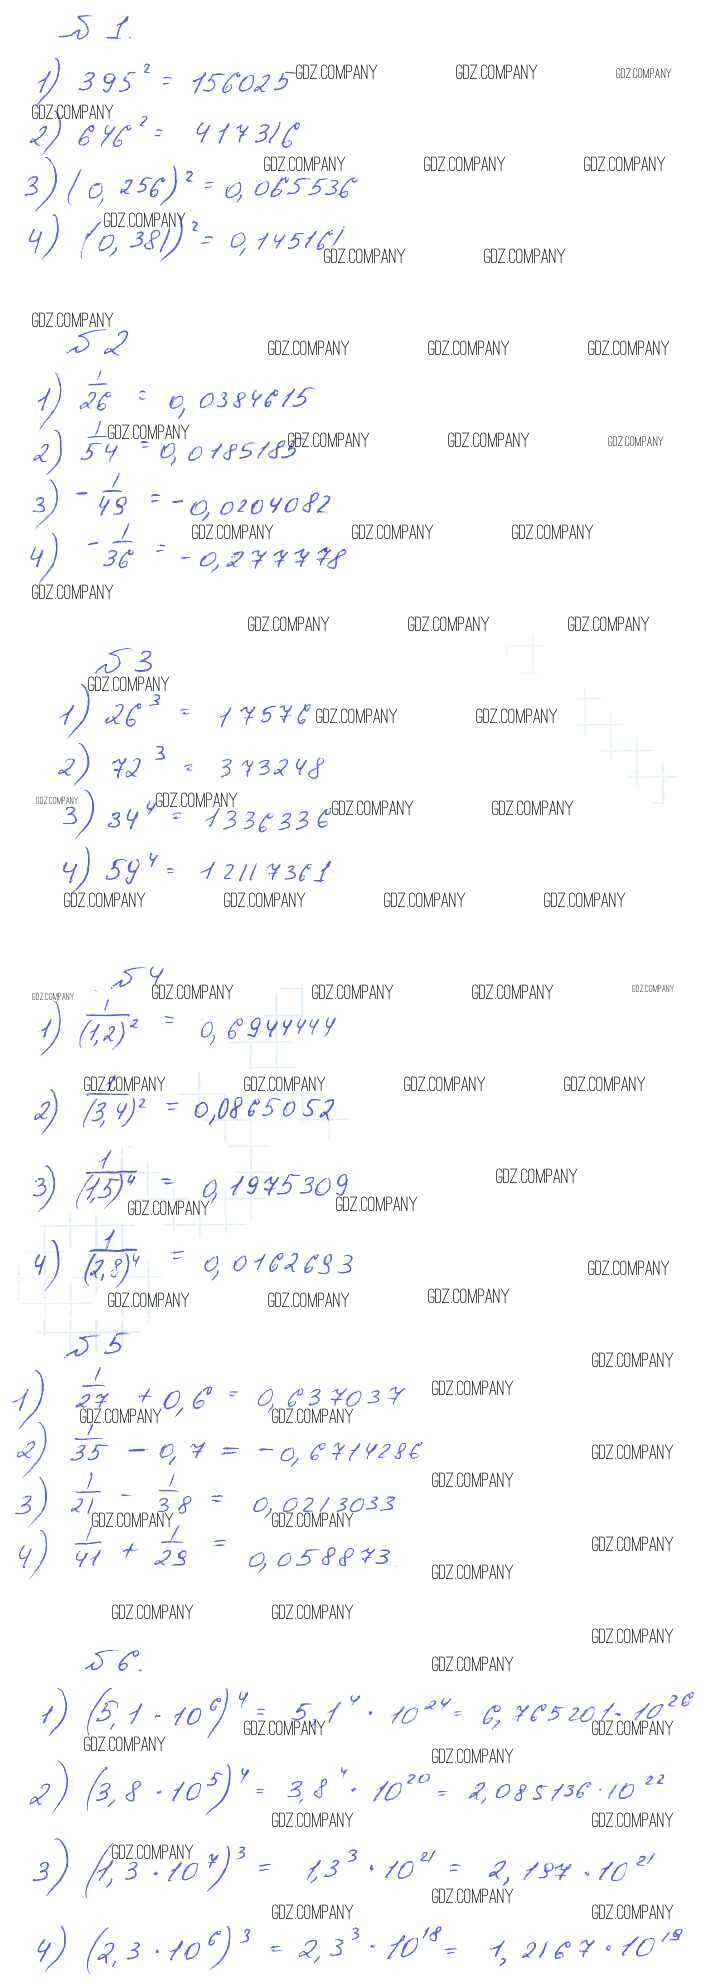 № 1.
1) 395² = 156025
2) 646² = 417316
3) (0,256)² = 0,065536
4) (0,381)² = 0,145161
№ 2
1) 1/26 = 0,0384615
2) 1/54 = 0,0185185
3) - 1/49 = -0,0204082
4) - 1/36 = -0,277778
№ 3
1) 26³ = 17576
2) 72³ = 373248
3) 34⁴ = 1336336
4) 59⁴ = 12117361
№ 4
1) 1/(1,2)² = 0,6944444
2) 1/(3,4)² = 0,0865052
3) 1/(1,5)⁴ = 0,1975309
4) 1/(2,8)⁴ = 0,0162693
№ 5
1) 1/27 + 0,6 = 0,637037
2) 1/35 - 0,7 = -0,6714286
3) 1/21 - 1/38 = 0,0213033
4) 1/41 + 1/29 = 0,058873
№ 6.
1) (5,1 · 10⁶)⁴ = 5,1⁴ · 10²⁴ = 6,765201 · 10²⁶
2) (3,8 · 10⁵)⁴ = 3,8⁴ · 10²⁰ = 2,085136 · 10²²
3) (1,3 · 10⁷)³ = 1,3³ · 10²¹ = 2,197 · 10²¹
4) (2,3 · 10⁶)³ = 2,3³ · 10¹⁸ = 1,2167 · 10¹⁹
GDZ.COMPANY